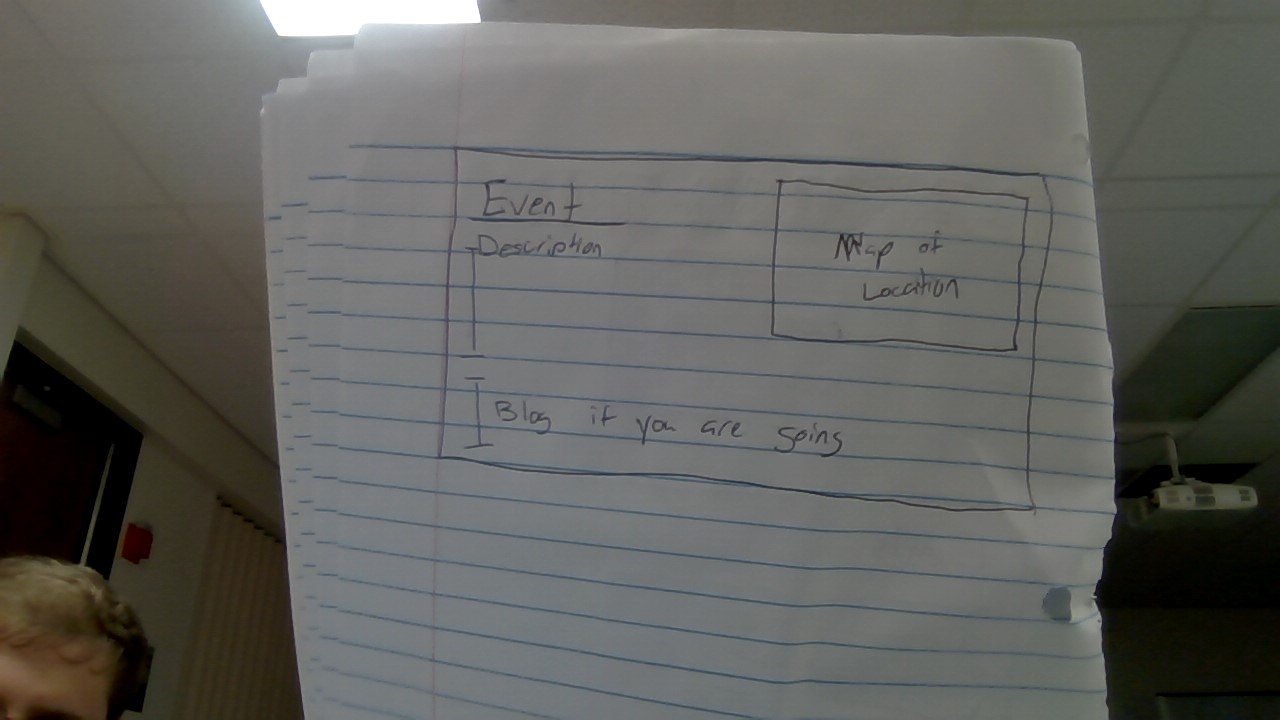 Event
Description
Map of
Location
Blog if you are going